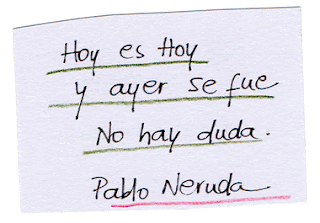 Hoy es Hoy
y ayer se fue
No hay duda.
Pablo Neruda